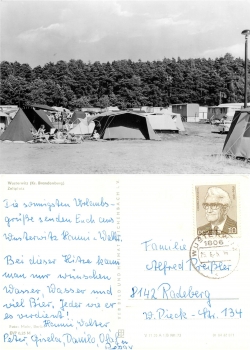 Wusterwitz (Kr. Brandenburg)
Zeltplatz
Die sonnigsten Urlaubs-
grüße senden Euch aus
Wusterwitz Hanni + Walter.
Bei dieser Hitze kann
man nur wünschen
Wasser, Wasser und
viel Bier, Jeder wie er
es verdient!
Hanni Walter
Peter, Gisela, Danilo
30
1806
Familie
Alfred
8142 Radeberg
W.-Pieck-Str. 134